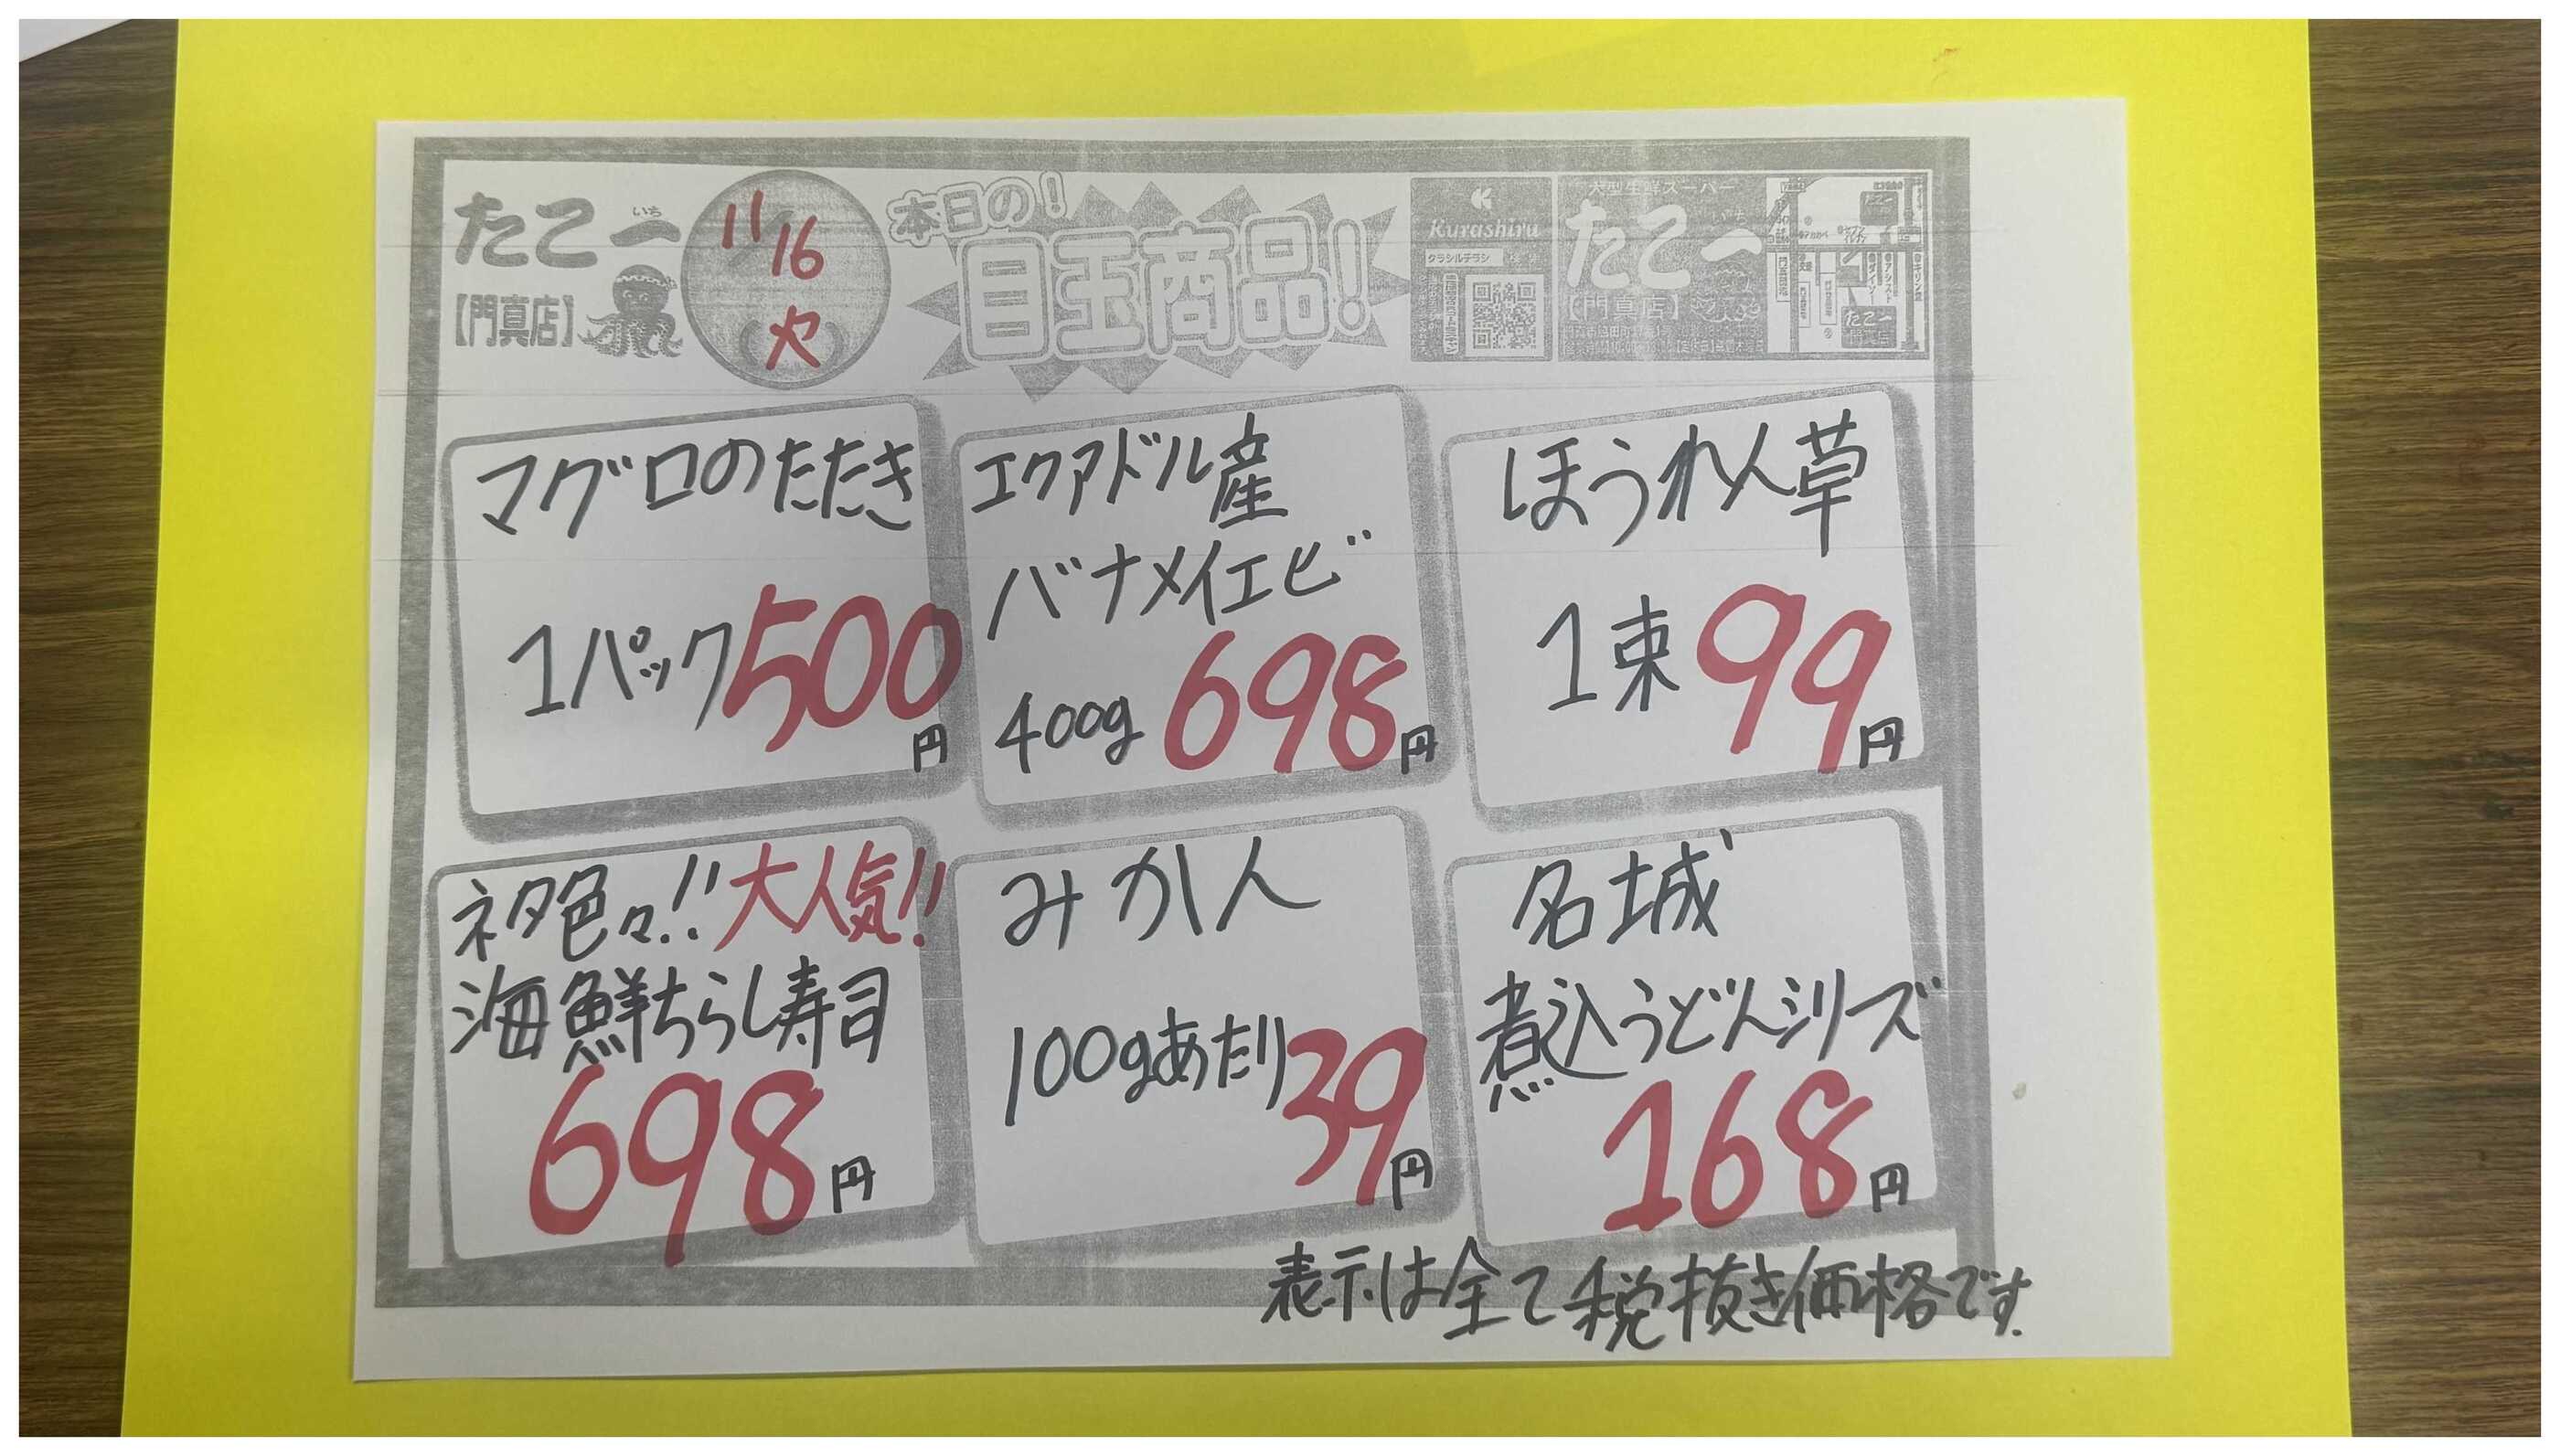 たこ一
いち
【門真店】
11/16
(火)
本日の!
目玉商品!
Kurashiru
クラシルチラシ
大型生鮮スーパー
たこ一
【門真店】
たこ一
マグロのたたき
1パック500円
エクアドル産
バナメイエビ
400g 698円
ほうれん草
1束 99円
ネタ色々!!大人気!!
海鮮ちらし寿司
698円
みかん
100gあたり39円
名城
煮込うどんシリーズ
168円
表示は全て税抜き価格です.